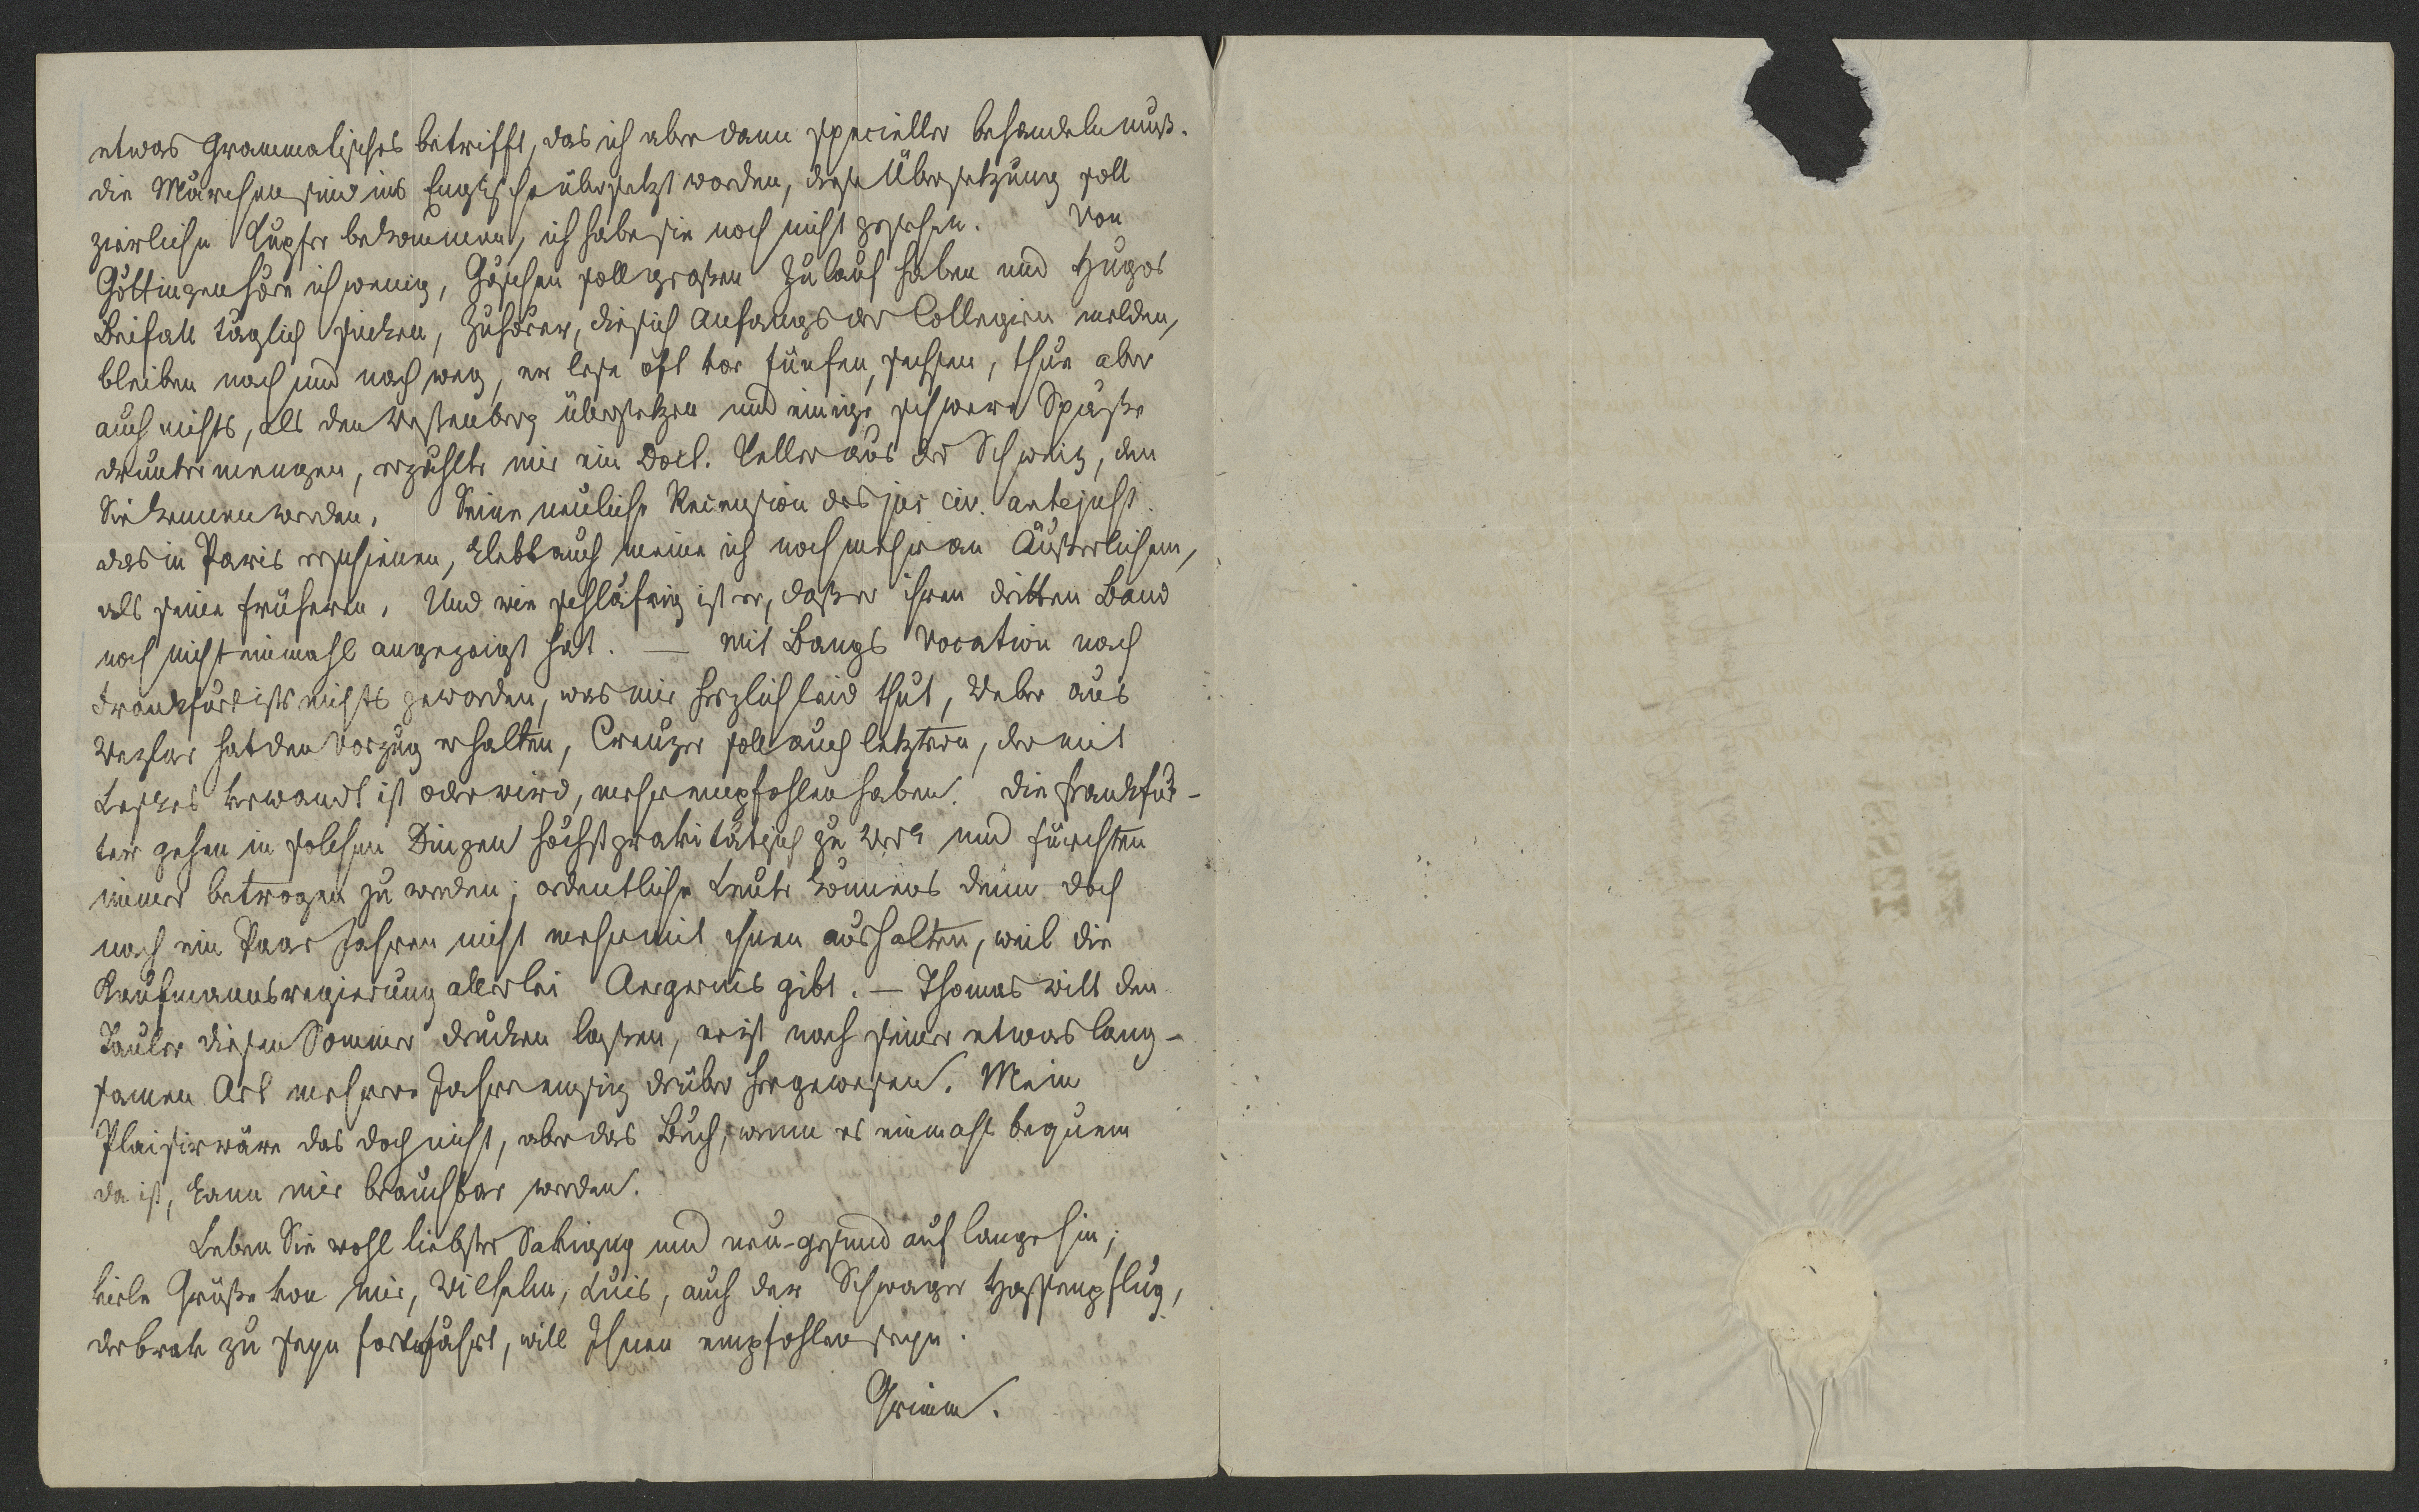 etwas Grammatisches betrifft, das ich aber dann specieller behandeln muß.
die Märchen sind ins Englische übersetzt worden, diese Übersetzung soll
zierliche Kupfer bekommen, ich habe sie noch nicht gesehen. Von
Göttingen höre ich wenig, Göschen soll großen Zulauf haben und Hugos
Beifall täglich sinken, Zuhörer, die sich Anfangs der Collegien melden,
bleiben nach und nach weg, er lese oft vor fünfen, sechsen, thue aber
auch nichts, als den Westenberg übersetzen und einige schwere Späße
drunter mengen, erzählte mir ein Doct. Keller aus der Schweiz, den
Sie kennen werden. Seine neuliche Recension des jus civ. antejust.
das in Paris erschienen, klebt auch meine ich noch mehr an Äußerlichem,
als seine früheren. Und wie schläfrig ist er, daß er ihren dritten Band
noch nicht einmahl angezeigt hat. — Mit Bangs Vocation nach
Frankfurt ists nichts geworden, was mir herzlich leid thut, Weber aus
Wezlar hat den Vorzug erhalten, Creuzer soll auch letztern, der mit
Leskes verwandt ist oder wird, mehr empfohlen haben. Die Frankfur-
ter gehen in solchen Dingen höchst gravitätisch zu Werk und fürchten
immer betrogen zu werden; ordentliche Leute könnens denn doch
nach ein Paar Jahren nicht mehr mit ihnen aushalten, weil die
Kaufmannsregierung allerlei Aergernis gibt. — Thomas will den
Tauler diesen Sommer drucken lassen, er ist nach seiner etwas lang-
samen Art mehrere Jahre emsig drüber hergewesen. Mein
Plaisir wäre das doch nicht, aber das Buch, wenn es einmahl bequem
da ist, kann mir brauchbar werden.
Leben Sie wohl liebster Savigny und neu-gesund auf lange hin;
viele Grüße von mir, Wilhelm, Luis, auch der Schwager Hassenpflug,
der brav zu seyn fortfährt, will Ihnen empfohlen seyn.
Grimm.